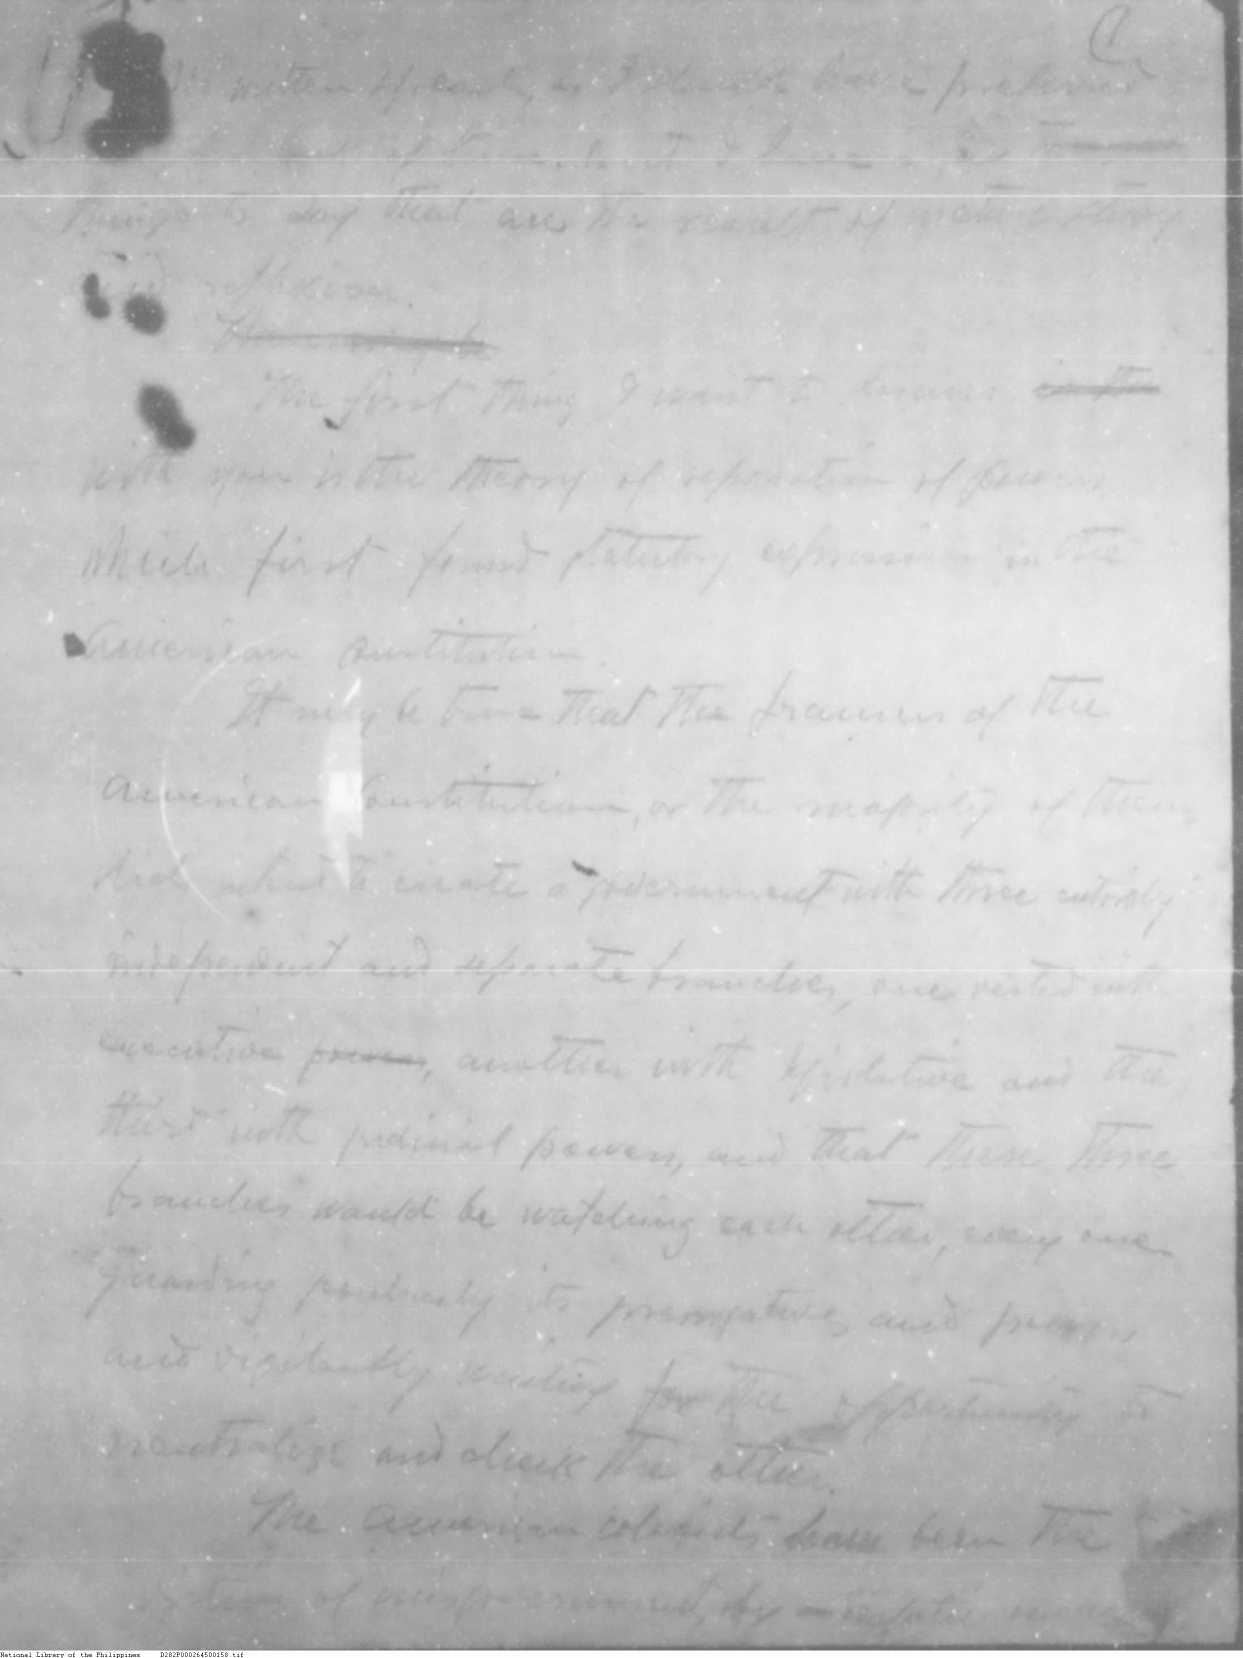 written speech, as I should have preferred
things to say that are the result of mature study
and reflexion.
The first thing I want to discuss in the
with you is the theory of separation of powers
which first found statutory expression in the
American Constitution.
It may be true that the framers of the
American Constitution, or the majority of them,
did to create a government with three entirely
independent and separate branches, one vested with
executive powers, another with legislative and the
third with judicial powers, and that these three
branches would be watching each other, every one
guarding jealously its prerogatives and powers
and vigilantly waiting for the opportunity to
neutralize and check the other.
The American colonists have been the
of misgovernment, by
National Library of the Philippines D282P000264500158.tif